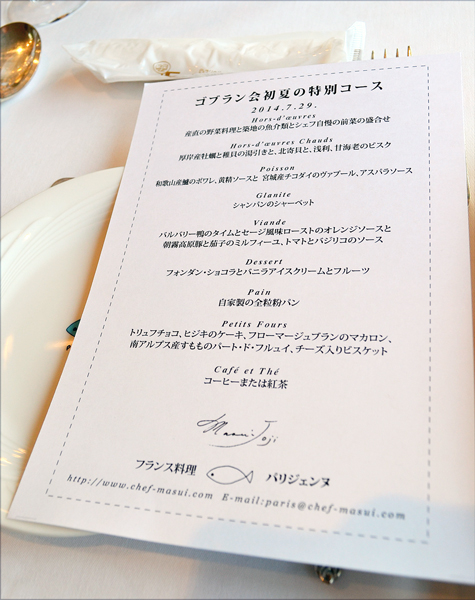 ゴブラン会初夏の特別コース
2014.7.29.
Hors-d'œuvres
産直の野菜料理と築地の魚介類とシェフ自慢の前菜の盛合せ
Hors-d'œuvres Chauds
厚岸産牡蠣と稚貝の湯引きと、北寄貝と、浅利、甘海老のビスク
Poisson
和歌山産鱸のポワレ、黄精ソースと 宮城産チコダイのヴァプール、アスパラソース
Glanite
シャンパンのシャーベット
Viande
バルバリー鴨のタイムとセージ風味ローストのオレンジソースと
朝霧高原豚と茄子のミルフィーユ、トマトとバジリコのソース
Dessert
フォンダン・ショコラとバニラアイスクリームとフルーツ
Pain
自家製の全粒粉パン
Petits Fours
トリュフチョコ、ヒジキのケーキ、フロマージュブランのマカロン、
南アルプス産すもものパート・ド・フルュイ、チーズ入りビスケット
Café et Thé
コーヒーまたは紅茶
Masui Joji
フランス料理 パリジェンヌ
http://www.chef-masui.com E-mail:paris@chef-masui.com